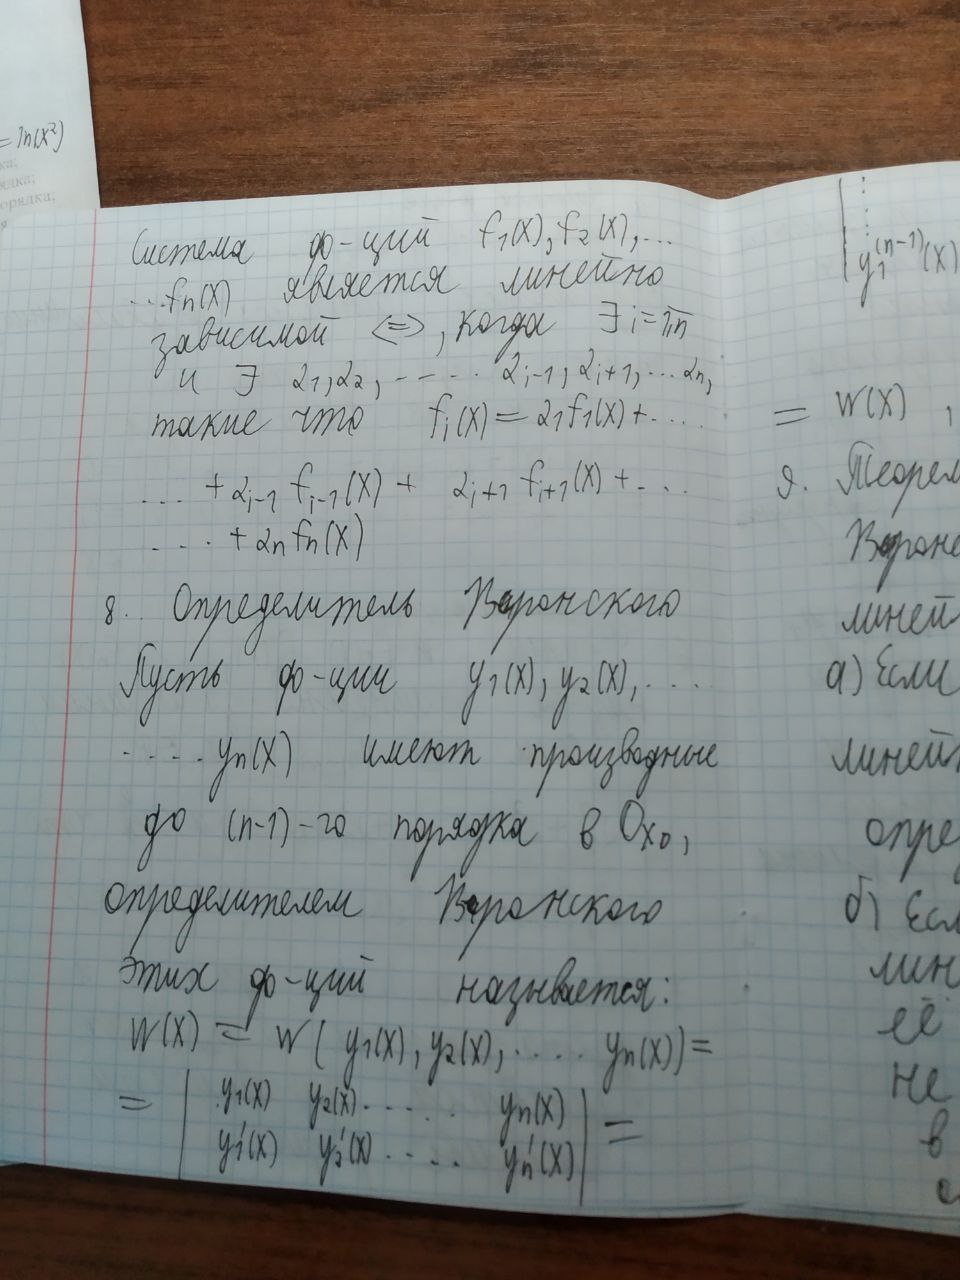 = ln(x²)
ка;
ядка;
орядка;
Система ф-ций f₁(x), f₂(x), ...
...fₙ(x) является линейно
зависимой <=>, когда ∃ i=1,n
и ∃ α₁, α₂, ..... αᵢ₋₁, αᵢ₊₁, ... αₙ,
такие что fᵢ(x) = α₁f₁(x) + ....
... + αᵢ₋₁ fᵢ₋₁(x) + αᵢ₊₁ fᵢ₊₁(x) + ...
.... + αₙ fₙ(x)
8. Определитель Вронского
Пусть ф-ции y₁(x), y₂(x), ....
..... yₙ(x) имеют производные
до (n-1)-го порядка в Oₓ₀,
определителем Вронского
этих ф-ций называется:
W(x) = W( y₁(x), y₂(x), ..... yₙ(x)) =
= | y₁(x) y₂(x) ...... yₙ(x) |
| y₁'(x) y₂'(x) ..... yₙ'(x) | =
y₁⁽ⁿ⁻¹⁾(x)
= W(x),
9. Теорем
Вронс
линей
а) Если
линей
опре
б) Есл
лин
её
не
в